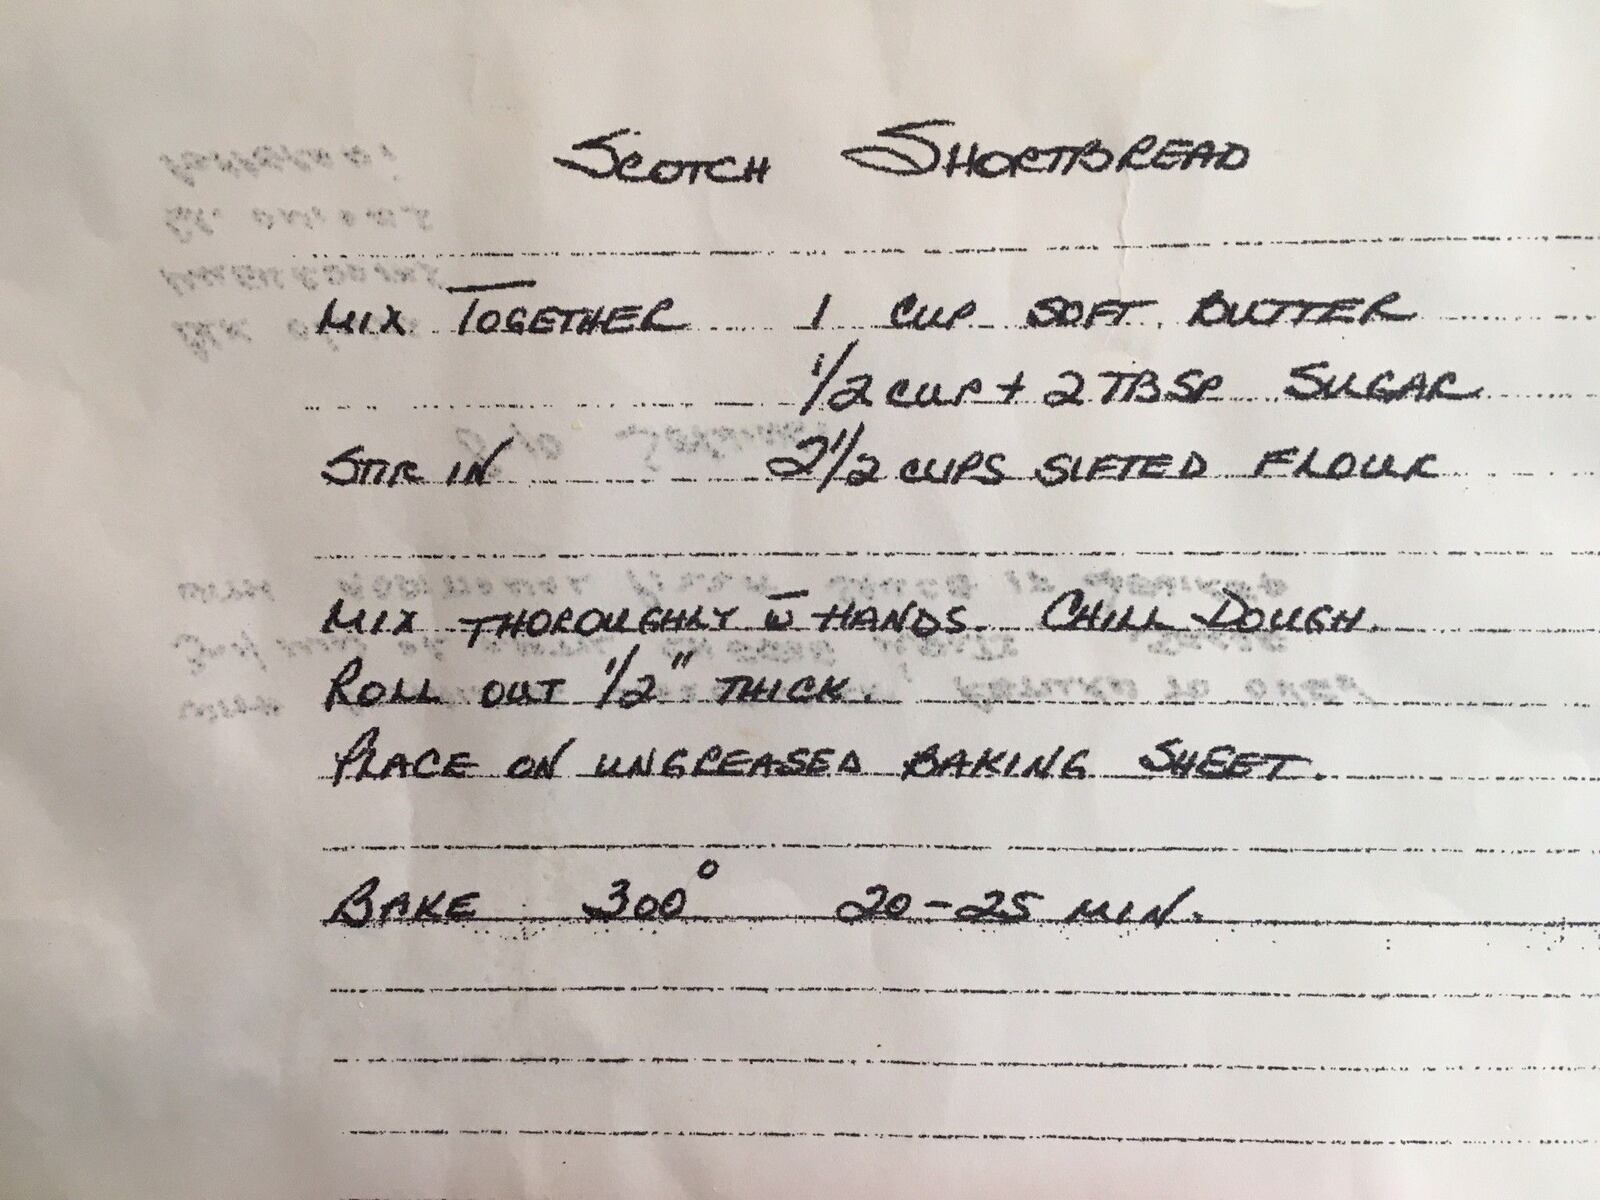 SCOTCH SHORTBREAD
MIX TOGETHER 1 CUP SOFT BUTTER
1/2 CUP + 2 TBSP SUGAR
STIR IN 2 1/2 CUPS SIFTED FLOUR
MIX THOROUGHLY w̄ HANDS. CHILL DOUGH.
ROLL OUT 1/2" THICK.
PLACE ON UNGREASED BAKING SHEET.
BAKE 300° 20-25 MIN.